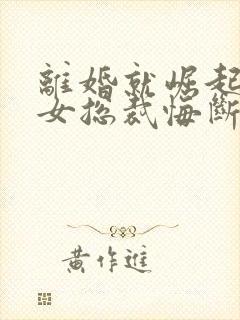 離婚就崛起
女總裁悔斷
黃作進